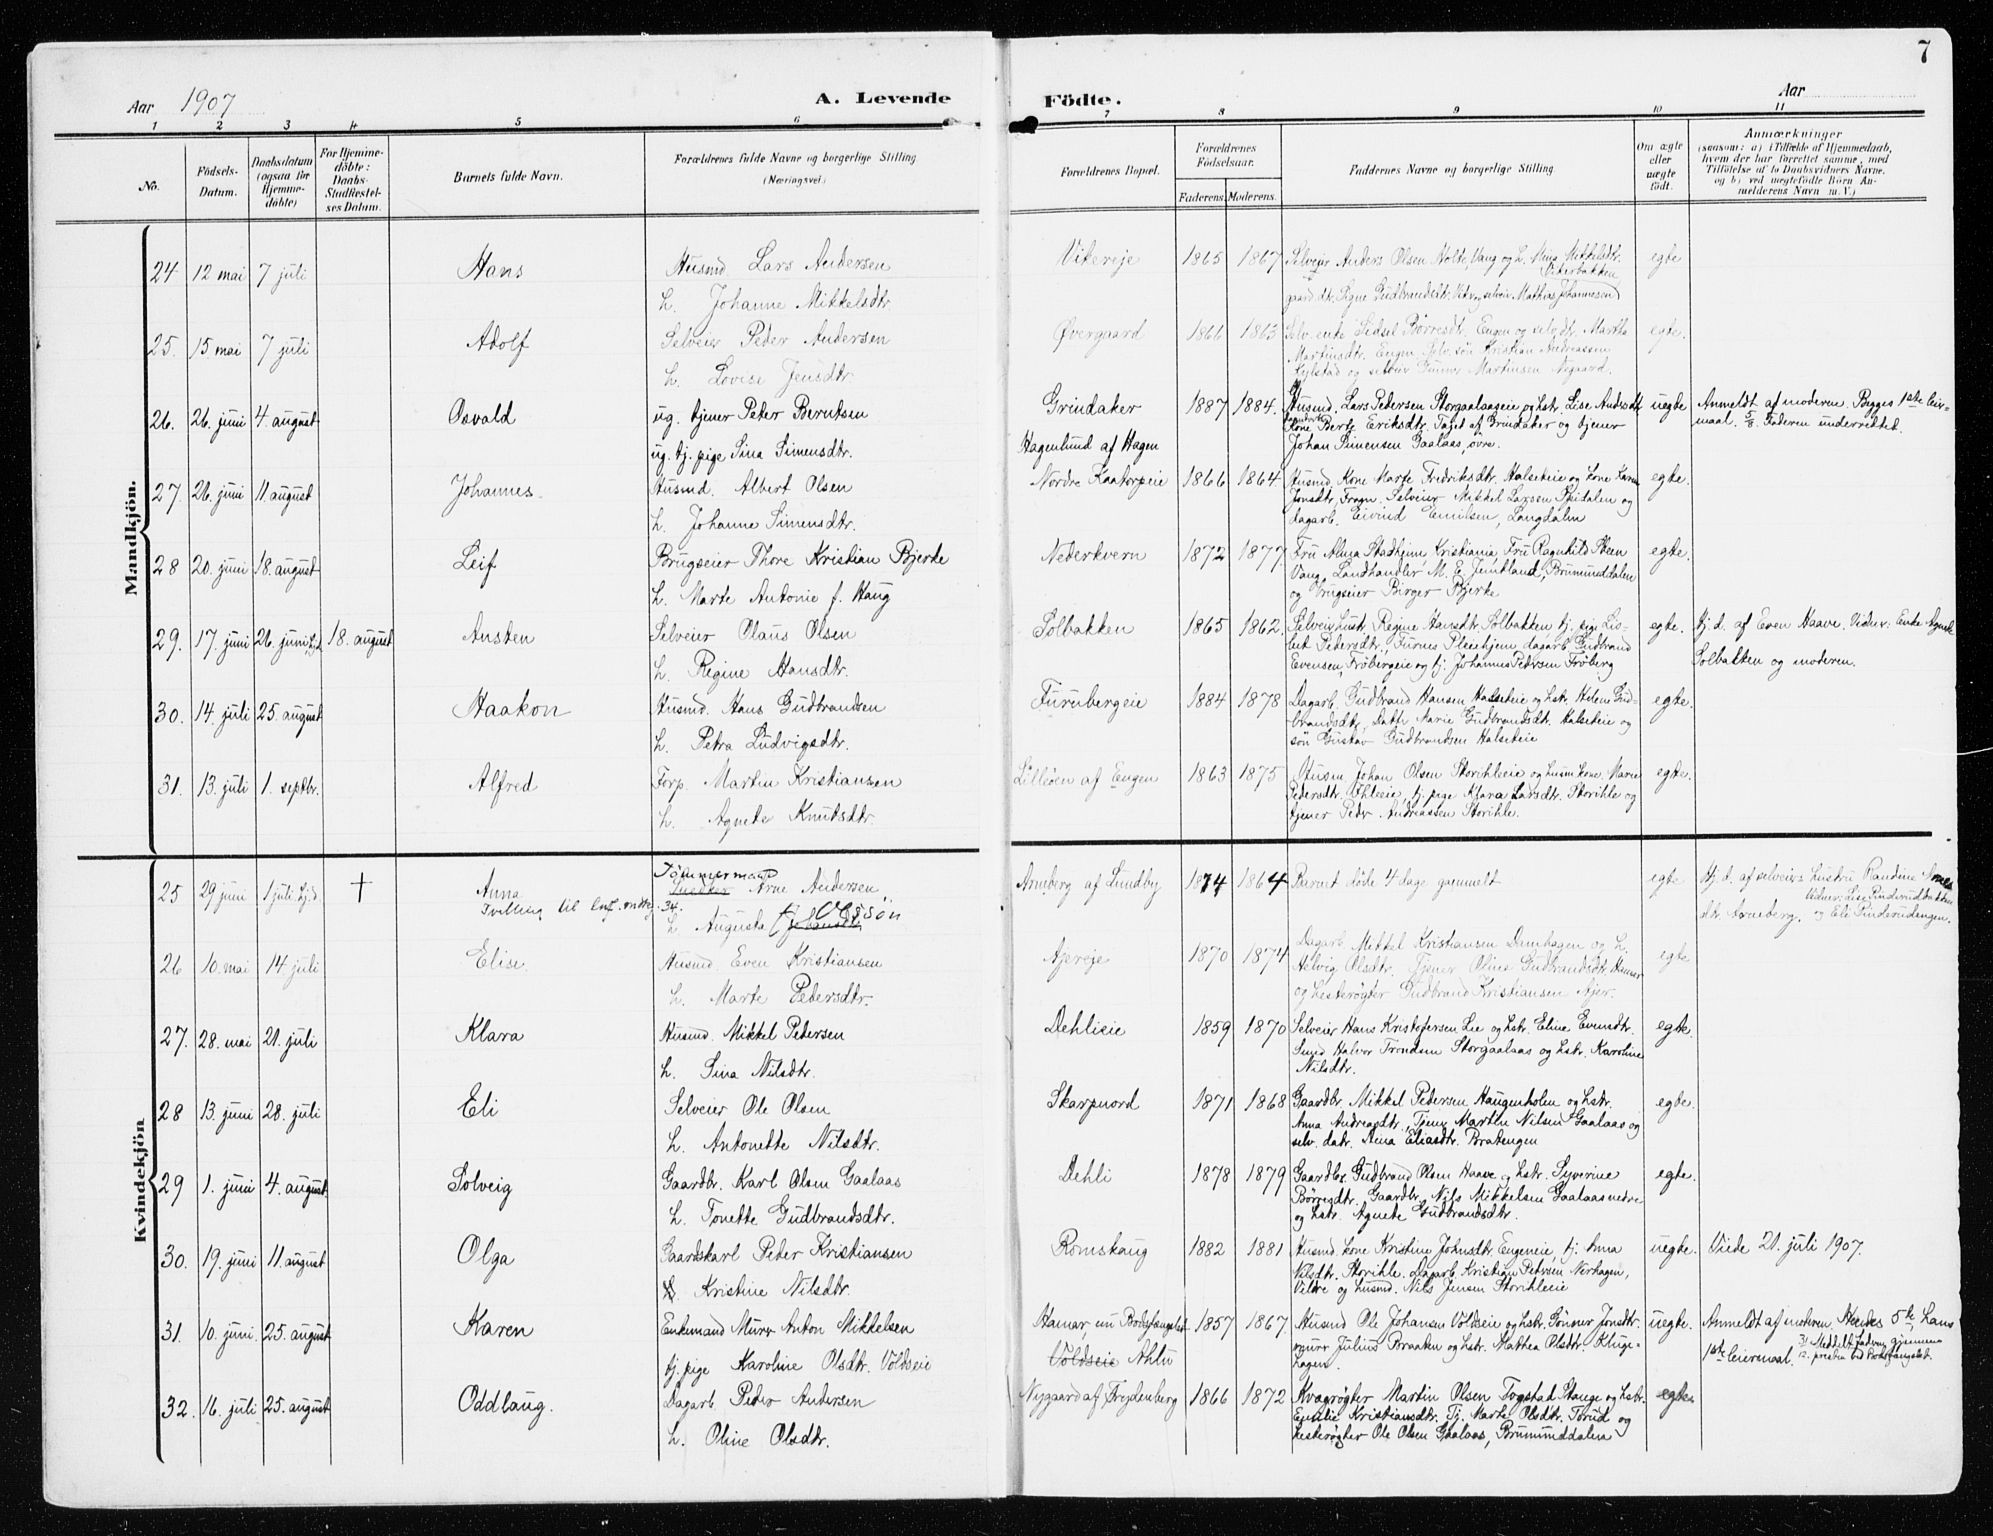 7
Aar 1907
A. Levende
Födte.
Aar
1 2 3 4 5 6 7 8 9 10 11
No.
Födsels-Datum.
Daabsdatum (ogsaa for Hjemme-döbte)
For Hjemme-döbte: Daabs-Stadfæstel-ses Datum.
Barnets fulde Navn.
Forældrenes fulde Navne og borgerlige Stilling (Næringsvei.)
Forældrenes Bopæl.
Forældrenes Födselsaar.
Faderens. Moderens.
Faddernes Navne og borgerlige Stilling.
Om ægte eller uægte födt.
Anmærkninger
(saasom: a) i Tilfælde af Hjemmedaab,
hvem der har forrettet samme, med
Tilföielse af to Daabsvidners Navne.
og b) ved uægtefödte Börn An-
melderens Navn m. V.)
Mandkjön.
24 12 mai 7 juli Hans Husmd. Lars Andersen Vikereje 1865 1867 Selveier Anders Olsen Holte, Vang og h. Mina Mikkelsdtr. egte
Vikerbakken
h. Johanne Mikkelsdtr. gaard dtr. Signe Gudbrandsdtr. Vik og selveier Mathias Johannesen
25. 15 mai 7 juli Adolf Selveier Peder Andersen Øvergaard 1866 1863 Selv. enke Sidsel Børresdtr. Engen og selv. dtr. Martha egte.
Martinsdtr. Engen, Selv. søn Kristian Andreassen
h. Lovise Jensdtr. og selveier Gunner Martinsen
26. 26. juni 4. august Osvald ug. tjener Peter Berntsen Grindaker 1887 1884. Husmd. Lars Pedersen Storgaalaaseie og hstr. Lise Andersdtr. uegte Anmeldt af moderen. Begges 1ste leier-
Kone Berte Eriksdtr. Taget af Grindaker og tjener maal. 5/8. Faderen underrettet.
ug. tj. pige Sina Simensdtr. Hagenlund af Hagen Johan Simensen Gaalaas, øvre.
27. 26. juni 11. august Johannes. Husmd. Albert Olsen Nordre Kaatorpeie 1866 1864. Husmd. Kone Marte Fredriksdtr. Halseteie og kone Karen egte.
Jonsdtr. Frogn. Selveier Mikkel Larsen Spidalen og
h. Johanne Simensdtr. dagarb. Eivind Emilsen, Langdalen
28 20. juni 18. august Leif Brugseier Thore Kristian Bjerke Nederkvern 1872 1877. Fru Alma Stadheim Kristiania, Fru Ragnhild Steen egte.
Vang, Landhandler M. E. Jemtland, Brumunddalen
h. Marte Antonie f. Haug og brugseier Birger Bjerke
29. 17. juni 26. juni h.d. 18. august Austen Selveier Olaus Olsen Solbakken 1865 1862. Selveierhustr. Regine Hansdtr. Solbakken, tj. pige Lis- egte. Hj. d. af Even Haave. Vidner: Enke Agnete
bet Pedersdtr. Furnes Pleiehjem, dagarb. Gudbrand Solbakken og moderen.
h. Regine Hansdtr. Evensen, Frøbergeie og tj. Johannes Pedersen Frøberg
30. 14. juli 25. august Haakon Husmd. Hans Gudbrandsen Furubergeie 1884 1878 Dagarb. Gudbrand Hansen Halseteie og hstr. Helene Gud- egte.
brandsdtr, Datt. Marie Gudbrandsdtr. Halseteie og
h. Petra Ludvigsdtr. søn Gustav Gudbrandsen Halseteie
31. 13. juli 1. septbr. Alfred Forp. Martin Kristiansen Lilleøen af Engen 1863 1875 Husm. Johan Olsen Storihleie og husm. kone Marie egte.
Pedersdtr. Ihleie, tj. pige Klara Larsdtr. Storihle og
h. Agnete Knutsdtr. tjener Peder Andreassen Storihle.
Kvindekjön
25 29 juni 1 juli hj. d. † Anna Tömmermand Snedker Arne Andersen Arneberg af Lundby 1874 1864 Barnet døde 4 dage gammelt egte Hj. d. af selveiers hustru Randine
Tvilling til 34. h. Augusta f. Olssøn dtr. Arneberg. Vidner: Lise Pinderudbakken og Eli Pinderudengen.
26 10. mai 14. juli Elise. Husmd. Even Kristiansen Ajereje 1870 1874 Dagarb. Mikkel Kristiansen Damhagen og h. egte
Helvig Olsdtr. Tjener Oline Gudbrandsdtr. Hamar
h. Marte Pedersdtr. og hesterøgter Gudbrand Kristiansen Ajer.
27. 28. mai 21. juli Klara Husmd. Mikkel Pedersen Dehlieie 1859 1870 Selveier Hans Kristofersen Lie og hstr. Eline Evensdtr. egte.
Smed Halvor Trondsen Storgaalaas og hstr. Karoline
h. Sina Nilsdtr. Nilsdtr.
28 13. juni 28. juli Eli Selveier Ole Olsen Skarpnord 1871 1868 Gaardbr. Mikkel Pedersen Haugenholen og hstr. egte.
Anna Andreasdtr., Tjener Martin Nilsen Gaalaas og
h. Antonette Nilsdtr. selv. datr. Anna Eliasdtr. Bratengen
29 1. juni 4. august Solveig Gaardbr. Karl Olsen Gaalaas Dehli 1878 1879 Gaardbr. Gudbrand Olsen Haave og hstr. Syverine egte.
Børresdtr. Gaardbr. Nils Mikkelsen Gaalaas nedre
h. Tonette Gudbrandsdtr. og hstr. Agnete Gudbrandsdtr.
30. 19. juni 11. august Olga Gaardskarl Peder Kristiansen Romskaug 1882 1881 Husmd. kone Kristine Johnsdtr. Engeneie, tj. Anna uegte. Viede 21. juli 1907.
Nilsdtr. Storihle. Dagarb. Kristian Petersen Nerhagen,
h. Kristine Nilsdtr. Veldre og husmd. Nils Jensen Storihleeie
31. 10. juni. 25. august Karen Enkemand Murer Anton Mikkelsen Hamar, nu Bodsfængslet 1857 1867. Husmd Ole Johansen Voldseie og hstr. Gønner Jonsdtr. uegte. Anmeldt af moderen. Hendes 5te, hans
murer Julius Braaken og hstr. Mathea Olsdtr. Kluge- 1ste leiermaal. 31/12. Meddelt faderen gjennem presten ved Bodsfængslet.
tj. pige Karoline Olsdtr. Voldseie Voldseie Ahlu hagen.
32. 16. juli 25. august Oddlaug. Dagarb. Peder Andersen Nygaard af Frydenberg 1866 1872 Kvægrøgter Martin Olsen Togstad Stange og hstr. egte
Emilie Kristiansdtr. Tj. Marte Olsdtr. Torud og
h. Oline Olsdtr. hesterøgter Ole Olsen Gaalaas, Brumunddalen